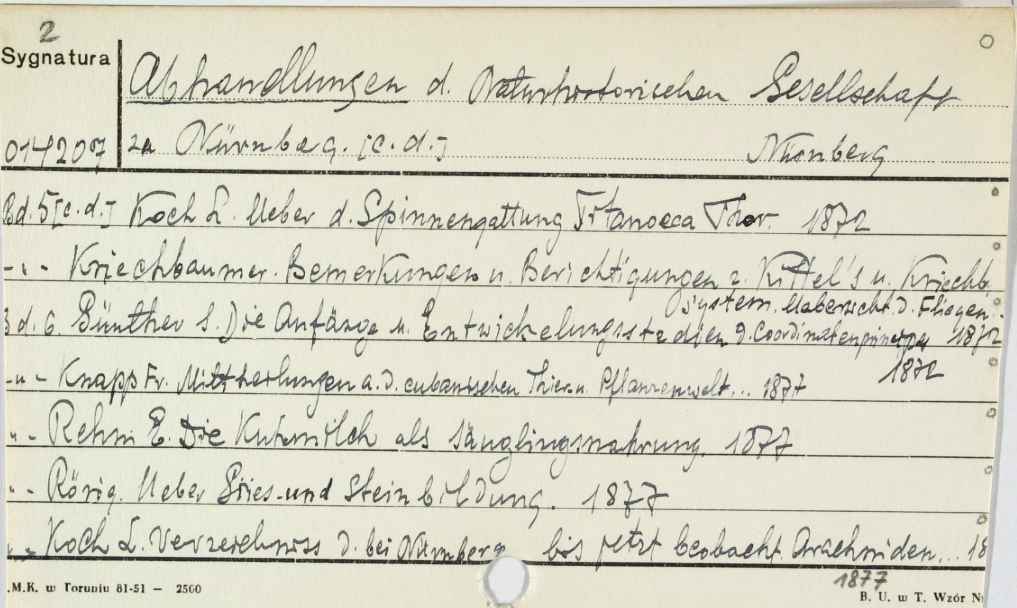 2
Sygnatura
Abhandlungen d. Naturhistorischen Gesellschaft
014207 zu Nürnberg. [c.d.] Nürnberg
Bd. 5 [c.d.] Koch L. Ueber d. Spinnengattung Titanoeca Thor. 1872
-"- Kriechbaumer. Bemerkungen u. Berichtigungen z. Kittel's u. Kriechb.
System. Uebersicht. d. Fliegen...
1872
Bd. 6. Günther S. Die Anfänge u. Entwickelungsstadien d. Coordinatenprincipa 1872
-"- Knapp Fr. Mittheilungen a. d. cubanischen Thier u. Pflanzenwelt... 1877
"- Rehm E. Die Kuhmilch als Säuglingsnahrung. 1877
"- Rörig. Ueber Gries- und Steinbildung. 1877
"- Koch L. Verzeichniss d. bei Nürnberg bis jetzt beobacht. Arachniden... 18
1877
.M.K. w Toruniu 81-51 — 2500
B. U. w T. Wzór Nr